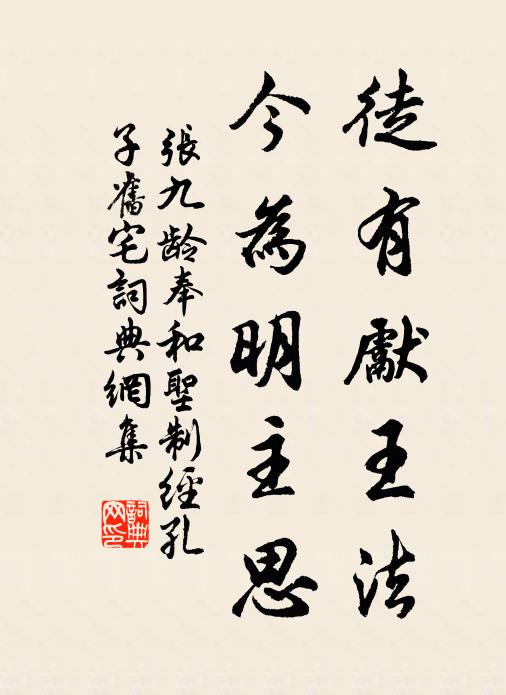 徒有獻王法
今為明主思
張九龄奉和聖制經孔
子舊宅詞典網集
詞典网印